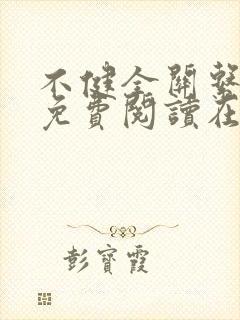 不健全關繫
免費閱讀在
彭寶霞